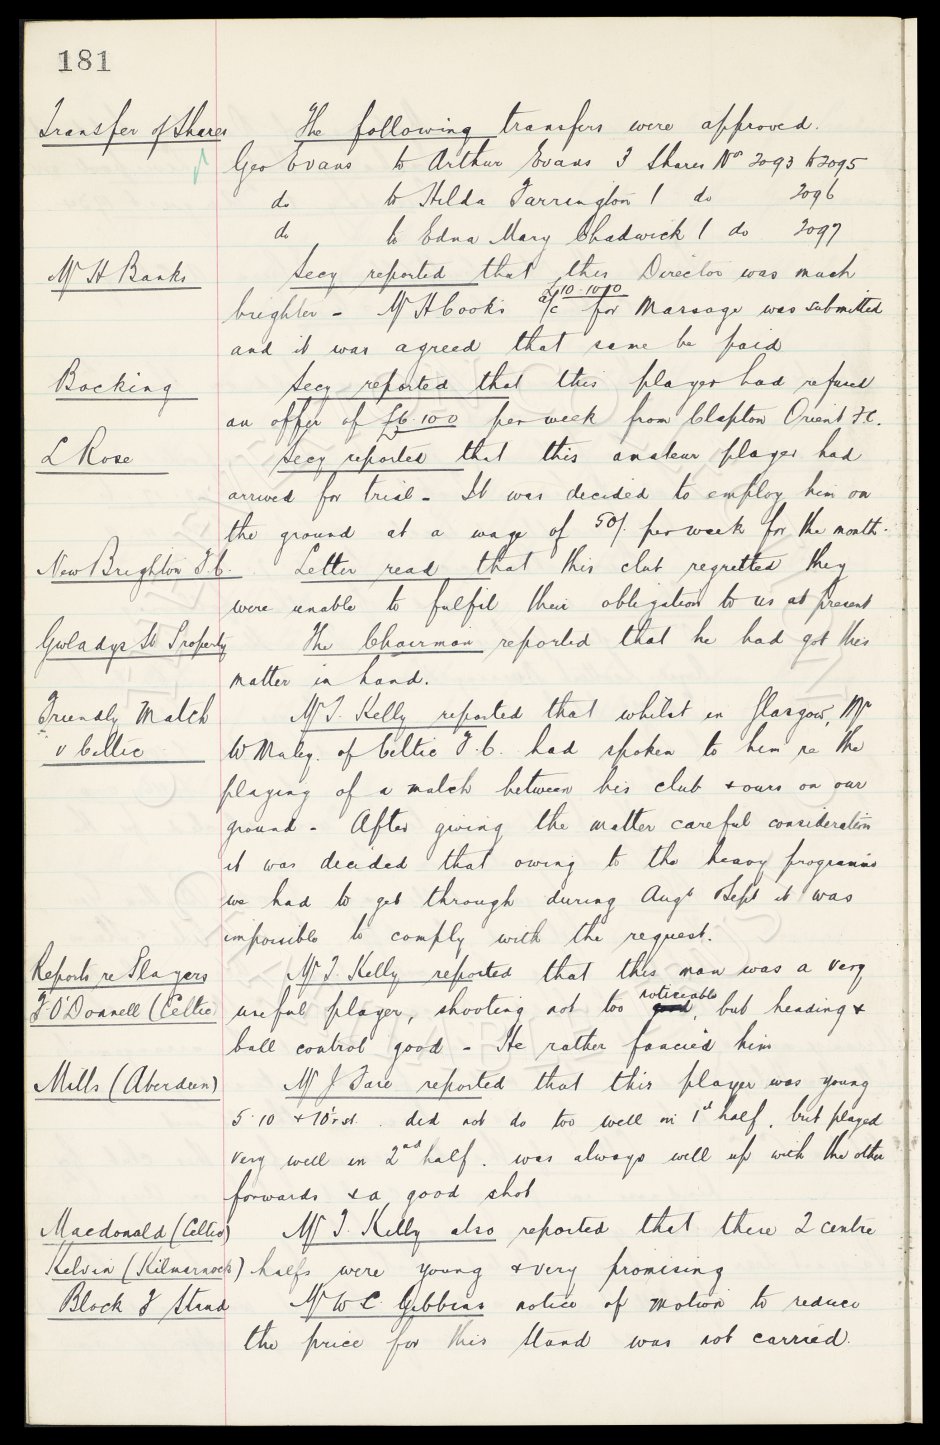 181
Transfer of Shares The following transfers were approved.
Geo Evans to Arthur Evans 3 Shares Nos 2093 to 2095
do to Hilda Farrington 1 do 2096
do to Edna Mary Chadwick 1 do 2097
Mr H Banks Secy reported that this Director was much
brighter - Mr H Cooks a/c £10.10.0 for Massage was submitted
and it was agreed that same be paid
Bocking Secy reported that this player had refused
an offer of £6.10.0 per week from Clapton Orient F.C.
L Rose Secy reported that this amateur player had
arrived for trial - It was decided to employ him on
the ground at a wage of 50/- per week for the month.
New Brighton F.C. Letter read that this club regretted they
were unable to fulfil their obligation to us at present
Gwladys St Property The Chairman reported that he had got this
matter in hand.
Friendly Match Mr T. Kelly reported that whilst in Glasgow, Mr
v Celtic W Maley. of Celtic F.C. had spoken to him re the
playing of a match between his club & ours on our
ground - After giving the matter careful consideration
it was decided that owing to the heavy programme
we had to get through during Augt Sept it was
impossible to comply with the request.
Reports re Players Mr T. Kelly reported that this man was a very
F O'Donnell (Celtic) useful player, shooting not too noticeable, but heading &
ball control good - He rather fancied him
Mills (Aberdeen) Mr J Fare reported that this player was young
5.10 & 10 st. did not do too well in 1st half, but played
very well in 2nd half. was always well up with the other
forwards & a good shot
Macdonald (Celtic) Mr T. Kelly also reported that these 2 centre
Kelvin (Kilmarnock) halfs were young & very promising
Block F Stand Mr W C. Gibbins notice of motion to reduce
the price for this Stand was not carried.